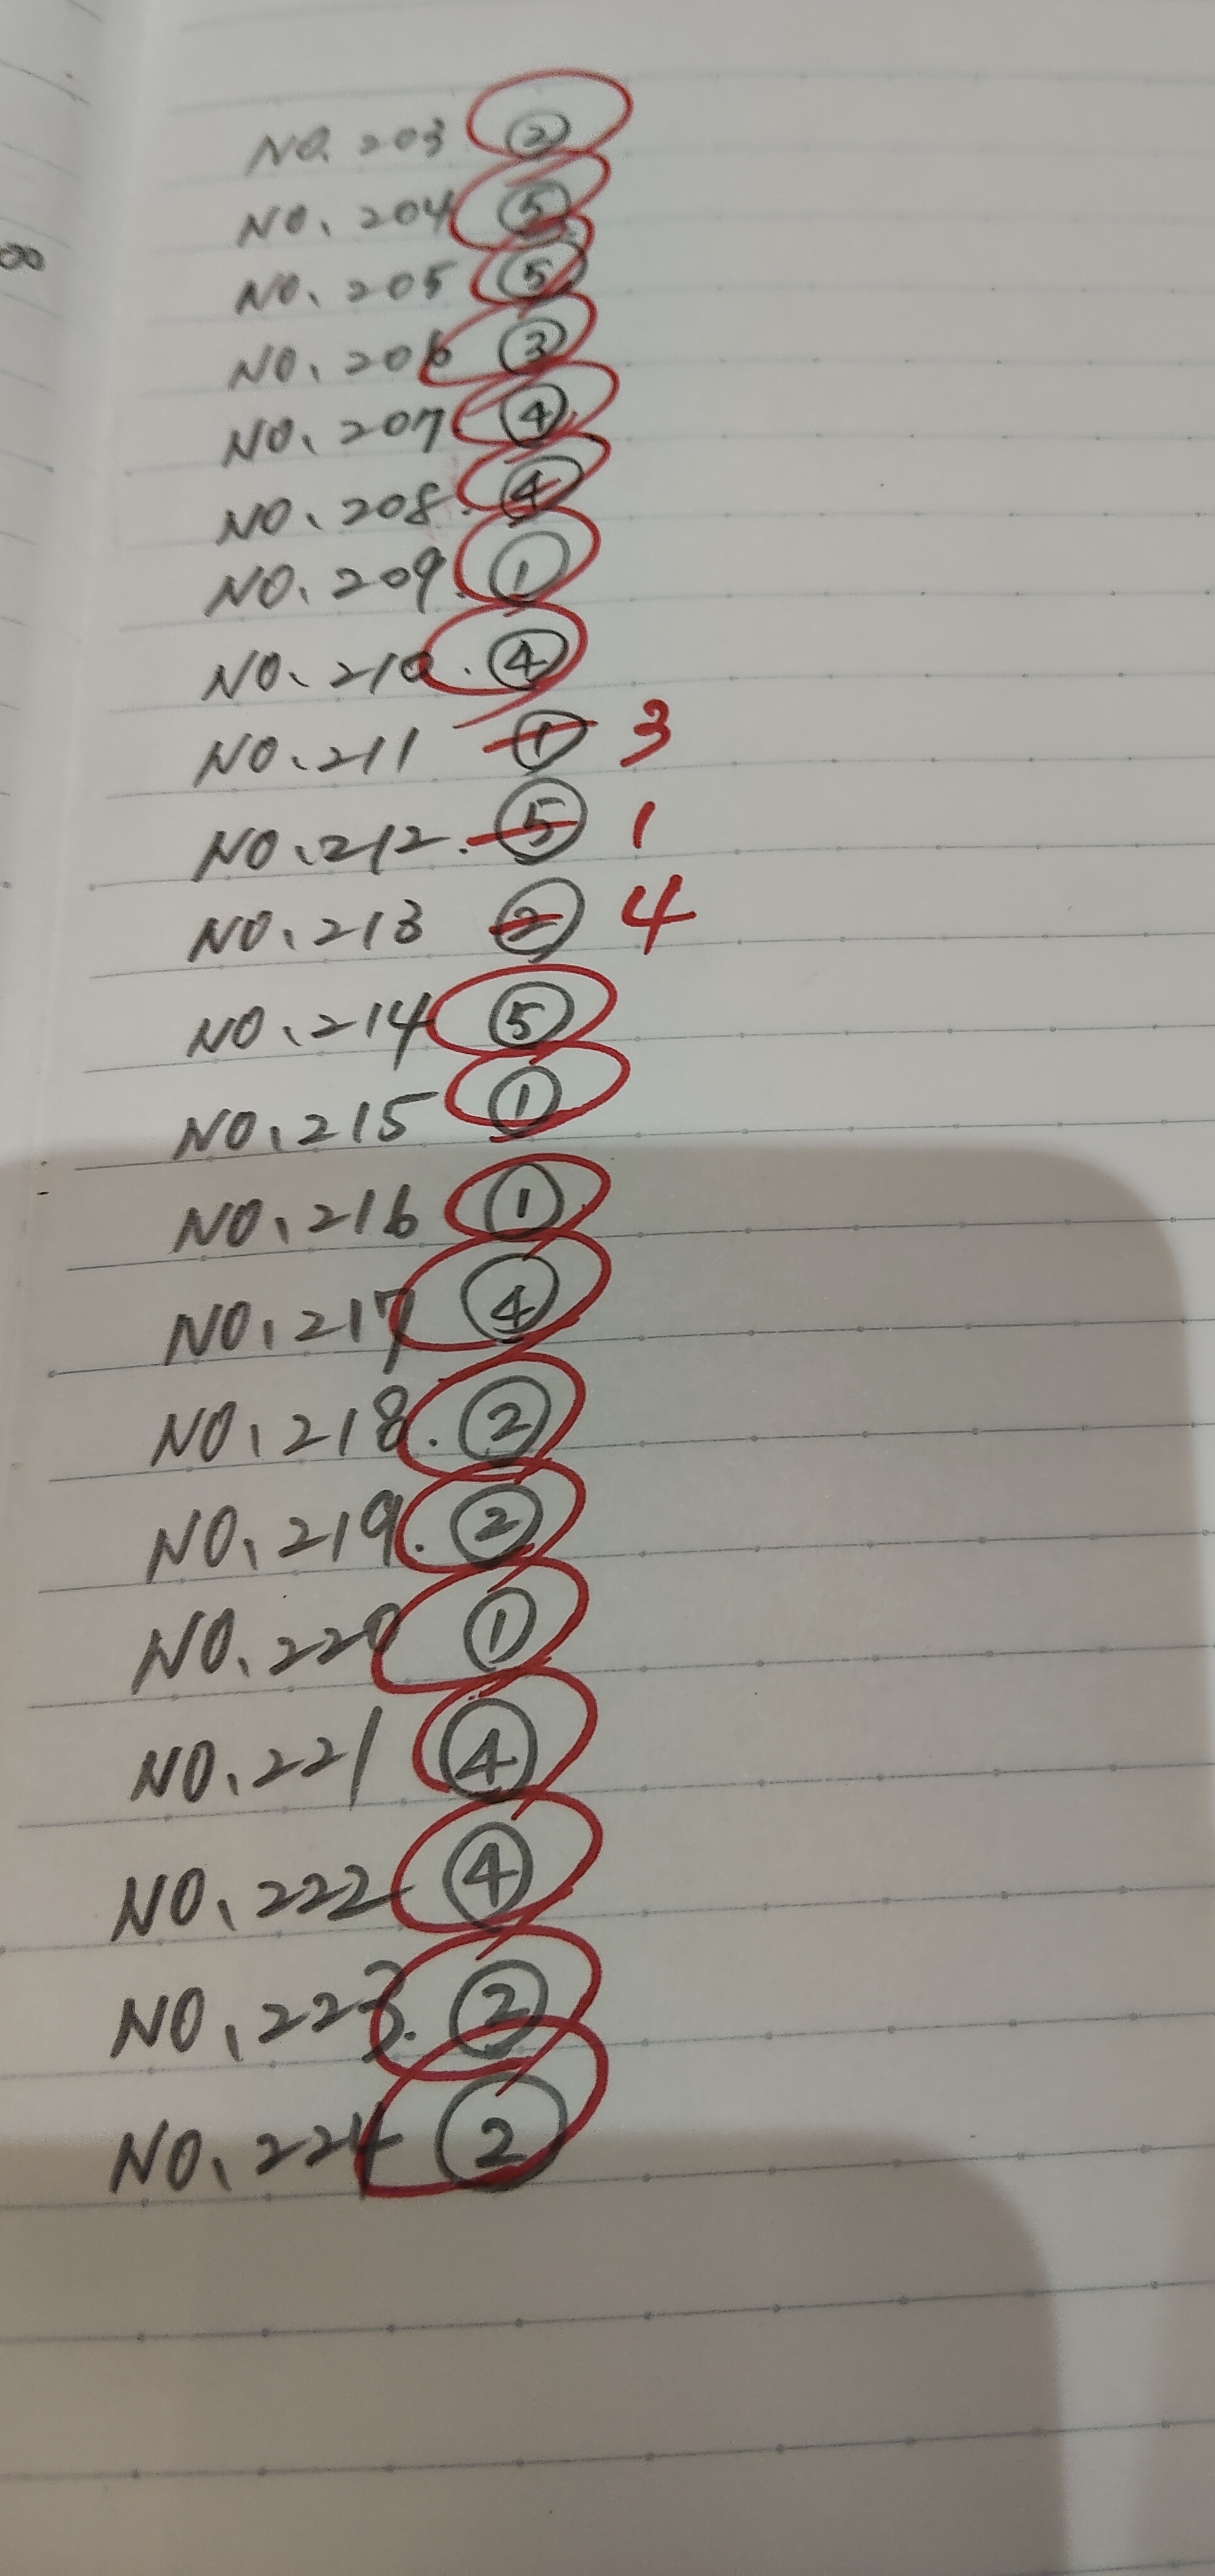 NO. 203 ②
NO. 204 ⑤
NO. 205 ⑤
NO. 206 ③
NO. 207 ④
NO. 208. ④
NO. 209. ①
NO. 210. ④
NO. 211 ① 3
NO. 212. ⑤ 1
NO. 213 ② 4
NO. 214 ⑤
NO. 215 ①
NO. 216 ①
NO. 217 ④
NO. 218. ②
NO. 219. ②
NO. 220 ①
NO. 221 ④
NO. 222 ④
NO. 223. ②
NO. 224 ②